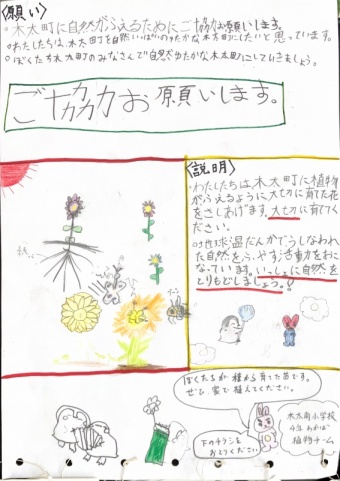 〈願い〉
・木太町に自然がふえるためにご協力お願いします。
・わたしたちは、木太町を自然いっぱいのゆたかな木太町にしたいと思っています。
・ぼくたち木太町のみなさんで自然ゆたかな木太町にしていきましょう。
ご協力お願いします。
〈説明〉
・わたしたちは木太町に植物
がふえるように大切に育てた花
をさしあげます。大切に育ててく
ださい。
・地球温だんかでうしなわれ
た自然をふやす活動をおこ
なっています。いっしょに自然を
とりもどしましょう。!
ぼくたちが種から育てた苗です。
ぜひ、家で植えてください。
下のチラシを
おとりください
木太南小学校
4年
植物チーム